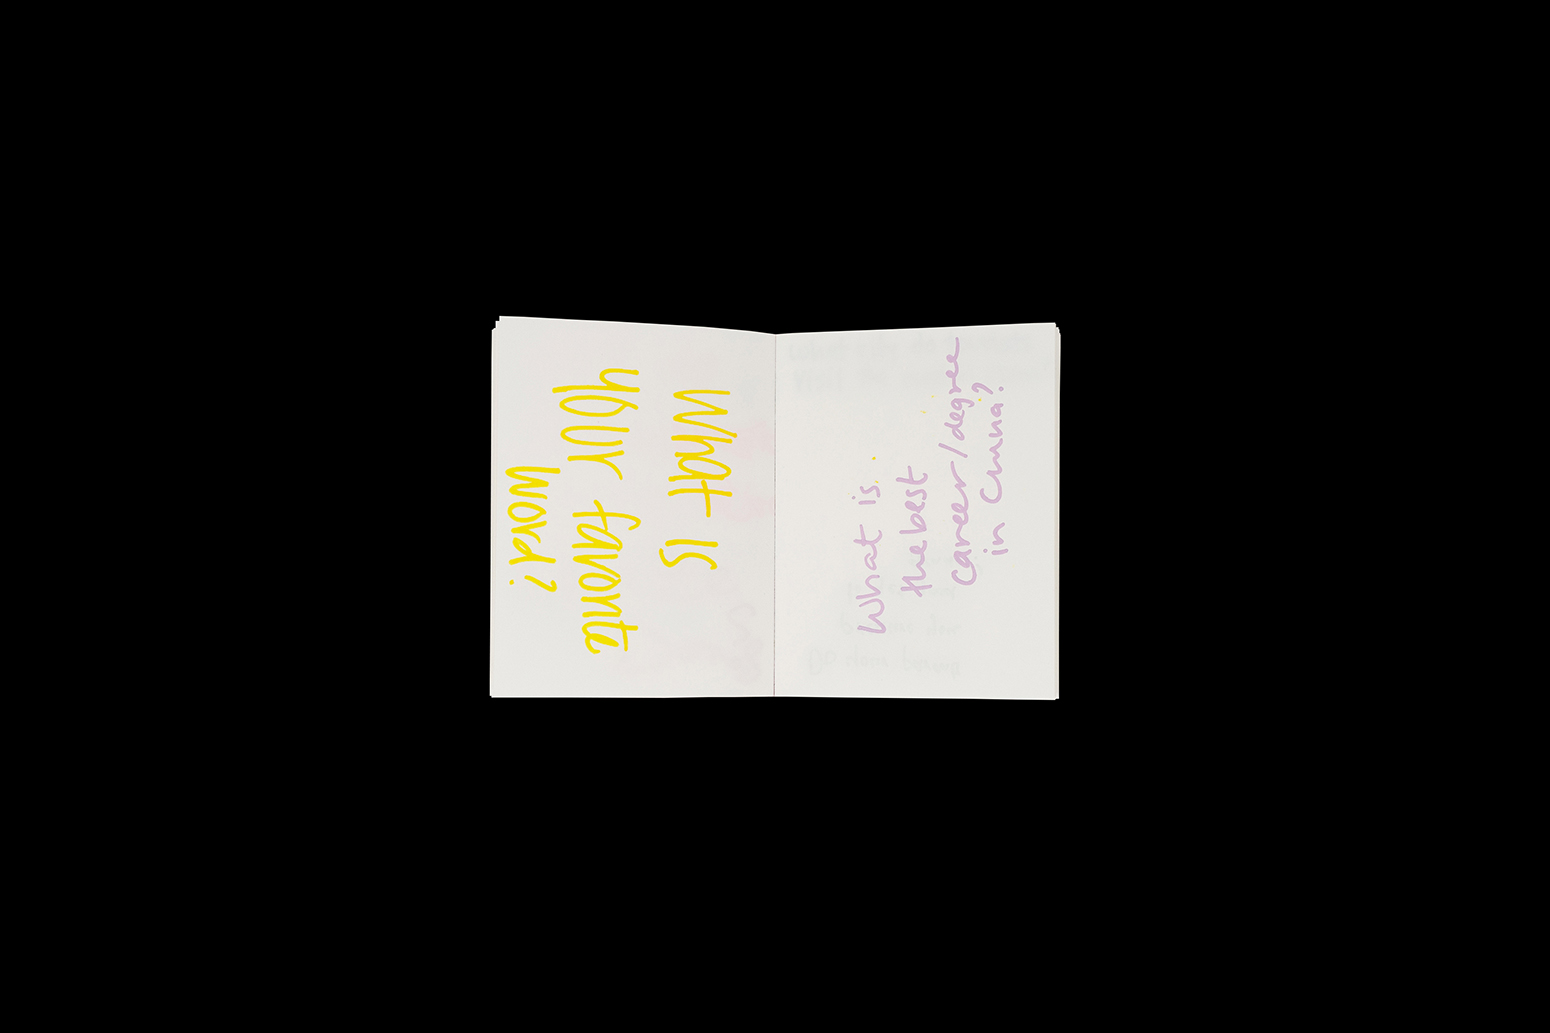 What is
your favorite
word?
What is
the best
career/degree
in China?